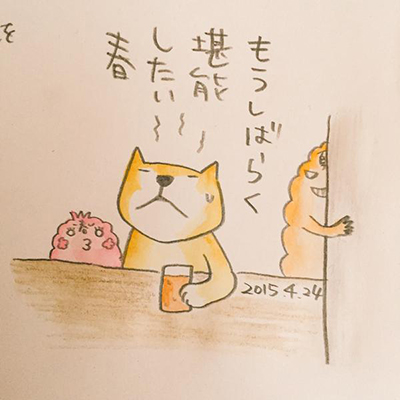 を
もうしばらく
堪能
したい〜
春
2015.4.24